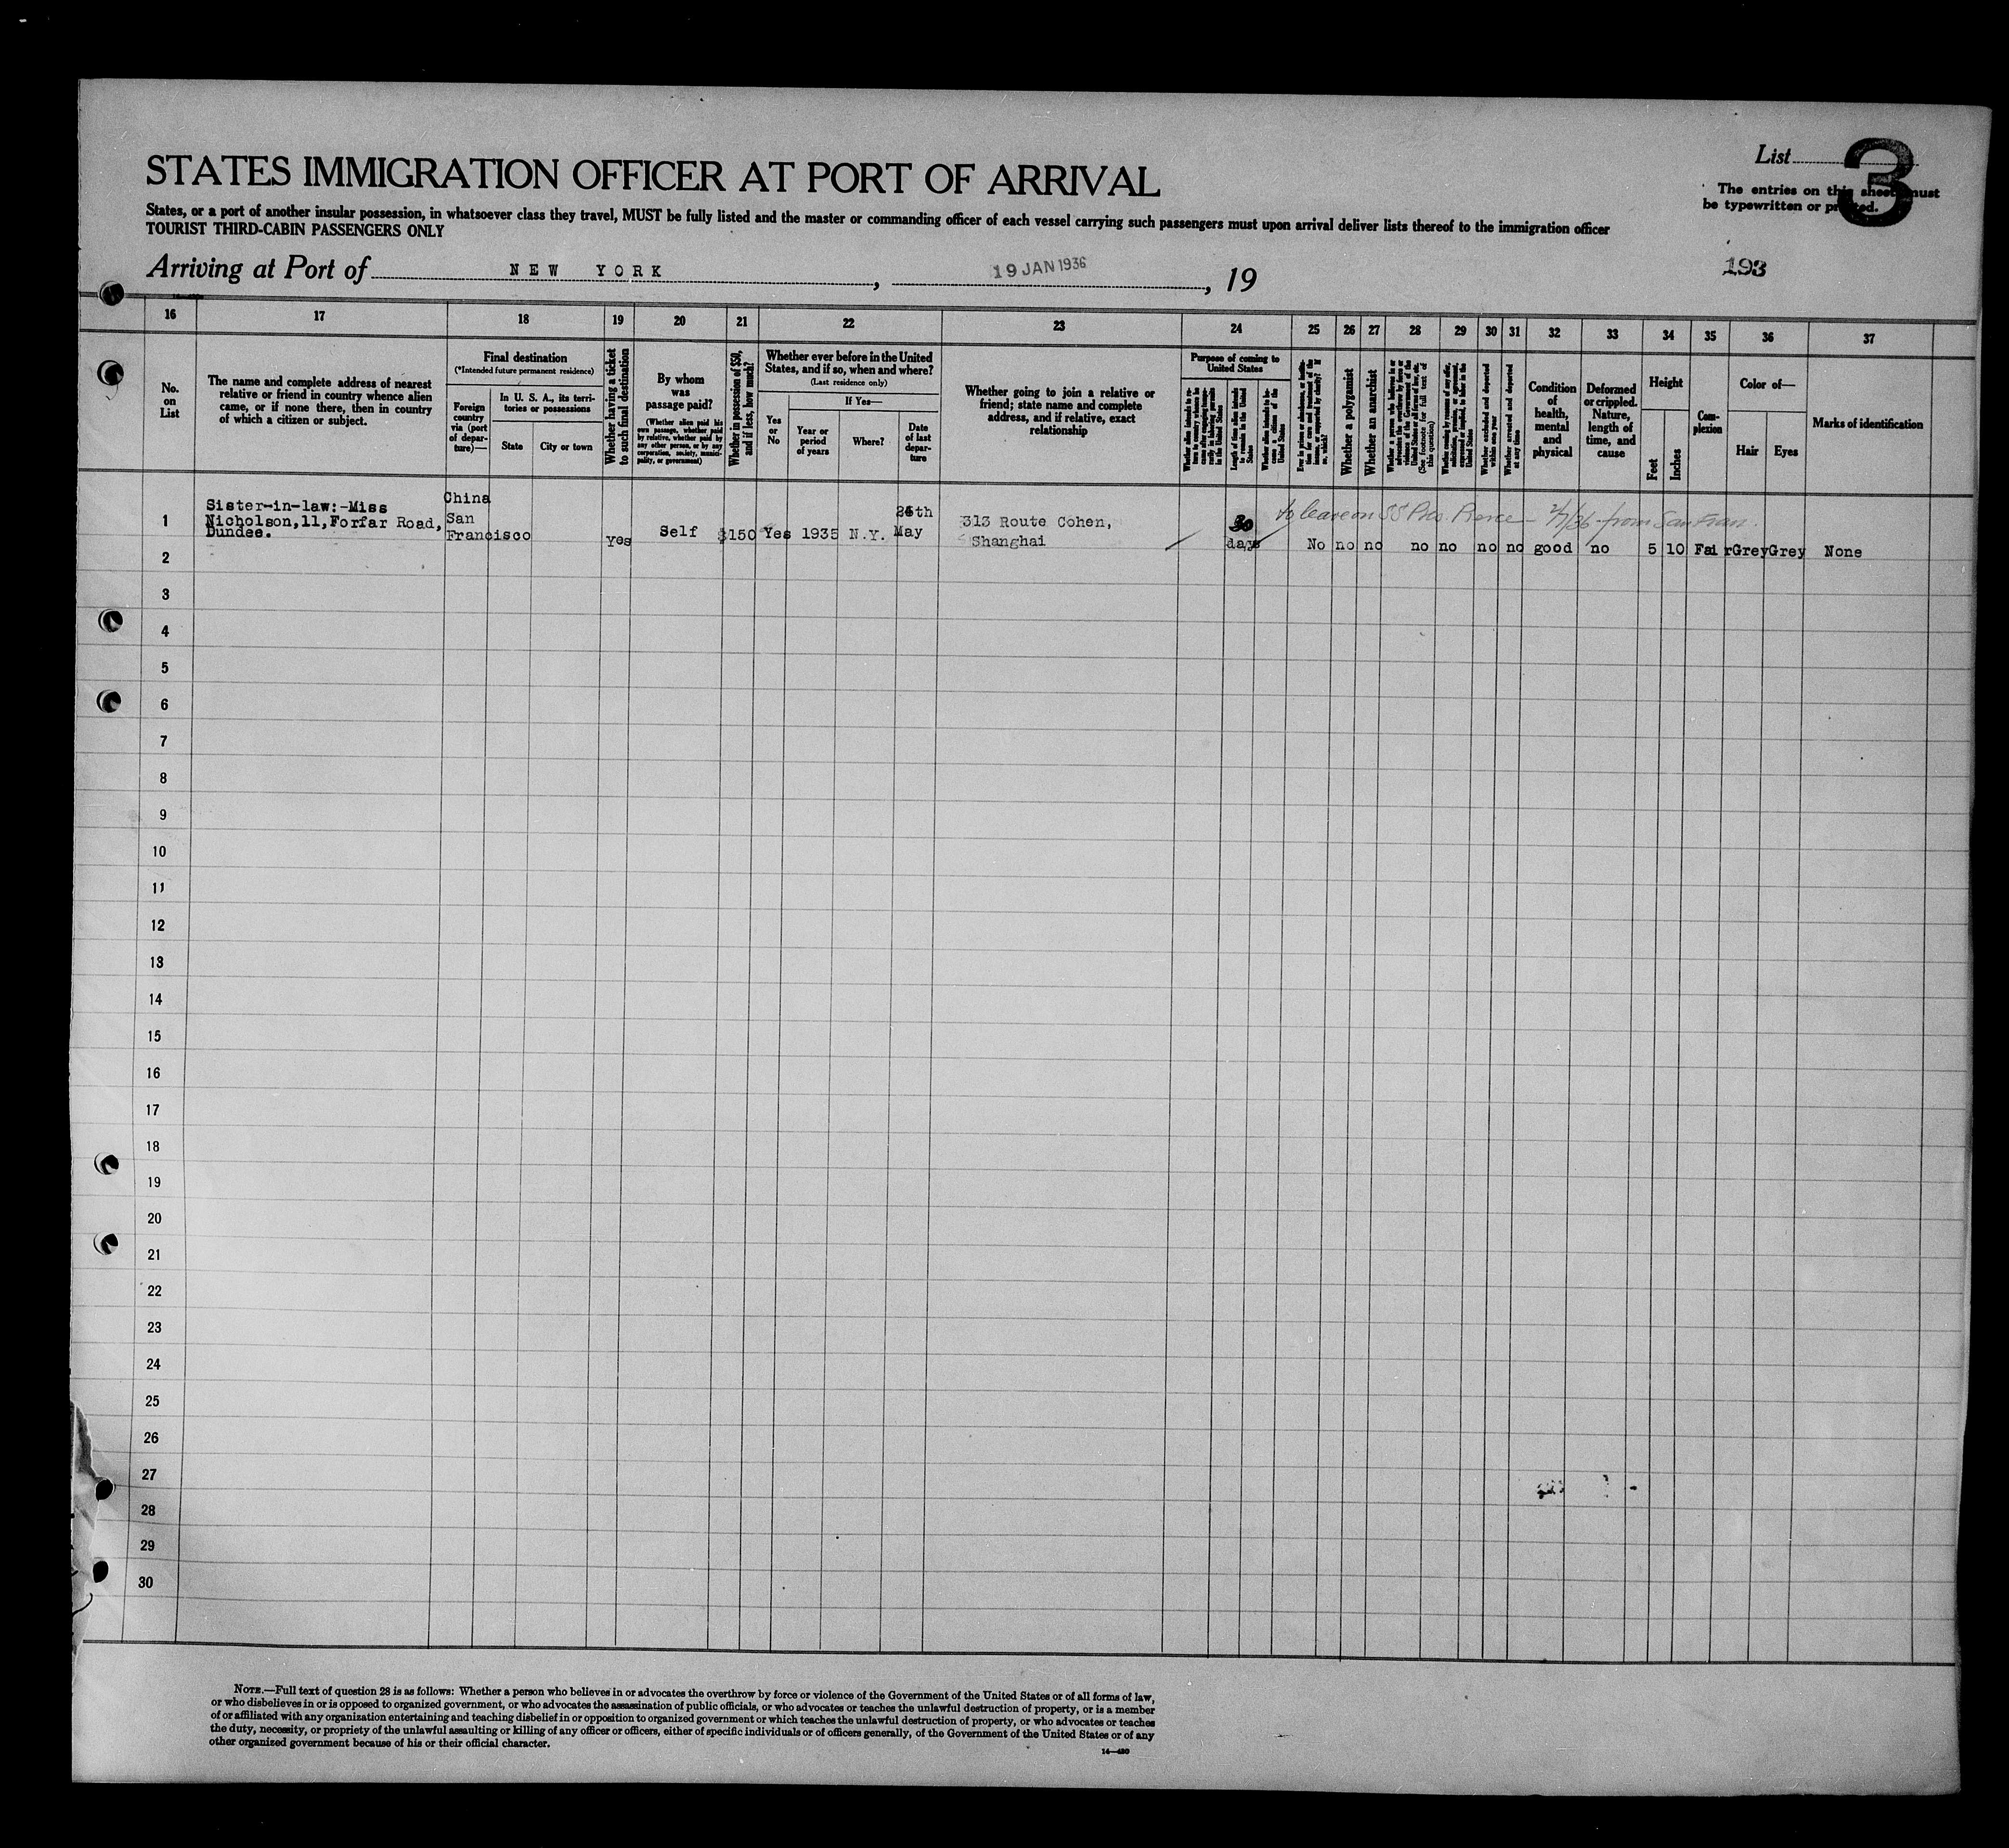 List
3
STATES IMMIGRATION OFFICER AT PORT OF ARRIVAL
The entries on this sheet must
be typewritten or printed.
States, or a port of another insular possession, in whatsoever class they travel, MUST be fully listed and the master or commanding officer of each vessel carrying such passengers must upon arrival deliver lists thereof to the immigration officer
TOURIST THIRD-CABIN PASSENGERS ONLY
Arriving at Port of NEW YORK, 19 JAN 1936, 19
193
16 17 18 19 20 21 22 23 24 25 26 27 28 29 30 31 32 33 34 35 36 37
No.
on
List
The name and complete address of nearest
relative or friend in country whence alien
came, or if none there, then in country
of which a citizen or subject.
Final destination
(*Intended future permanent residence)
Foreign
country
via (port
of depar-
ture)—
In U. S. A., its terri-
tories or possessions
State
City or town
Whether having a ticket
to such final destination
By whom
was
passage paid?
(Whether alien paid his
own passage, whether paid
by relative, whether paid by
any other person, or by any
corporation, society, munici-
pality, or government)
Whether in possession of $50,
and if less, how much?
Whether ever before in the United
States, and if so, when and where?
(Last residence only)
Yes
or
No
If Yes—
Year or
period
of years
Where?
Date
of last
depar-
ture
Whether going to join a relative or
friend; state name and complete
address, and if relative, exact
relationship
Purpose of coming to
United States
Length of time alien intends
to remain in the United
States
Whether alien intends to be-
come a citizen of the
United States
Whether a polygamist
Whether an anarchist
(See footnote for full text of
this question)
Whether excluded and deported
within one year
Whether arrested and deported
at any time
Condition
of
health,
mental
and
physical
Deformed
or crippled.
Nature,
length of
time, and
cause
Height
Feet
Inches
Com-
plexion
Color of—
Hair
Eyes
Marks of identification
1
Sister-in-law:-Miss
Nicholson,11,Forfar Road,
Dundee.
China
San
Francisco
yes
Self
$150
Yes
1935
N.Y.
May
313 Route Cohen,
Shanghai
30
days
to leave on SS Pres. Pierce – 2/7/36 from San Fran.
No no no no no no no good no 5 10 Fair Grey Grey None
2
3
4
5
6
7
8
9
10
11
12
13
14
15
16
17
18
19
20
21
22
23
24
25
26
27
28
29
30
NOTE.—Full text of question 28 is as follows: Whether a person who believes in or advocates the overthrow by force or violence of the Government of the United States or of all forms of law,
or who disbelieves in or is opposed to organized government, or who advocates the assassination of public officials, or who advocates or teaches the unlawful destruction of property, or is a member
of or affiliated with any organization entertaining and teaching disbelief in or opposition to organized government or which teaches the unlawful destruction of property, or who advocates or teaches
the duty, necessity, or propriety of the unlawful assaulting or killing of any officer or officers, either of specific individuals or of officers generally, of the Government of the United States or of any
other organized government because of his or their official character.
14—480